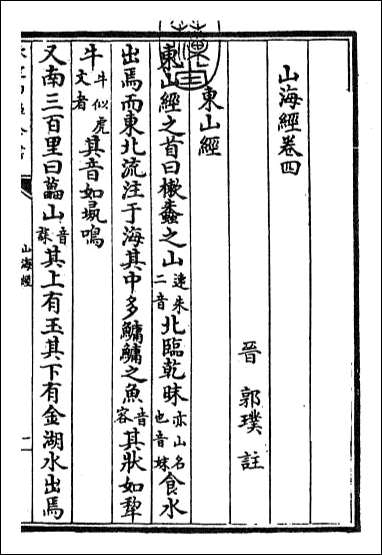 山海經卷四
晉 郭璞 註
東山經
東山經之首曰樕𧑤之山速朱二音北臨乾昧亦山名也音妹食水
出焉而東北流注于海其中多鱅鱅之魚音容其狀如犂
牛牛似虎文者其音如彘鳴
又南三百里曰藟山音誄其上有玉其下有金湖水出焉
山海經